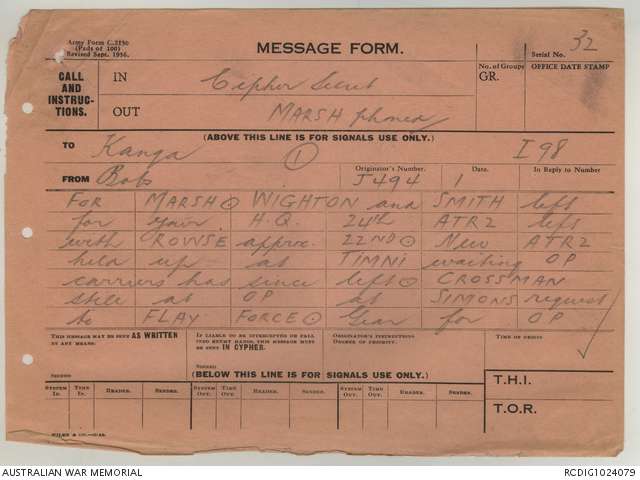 Army Form C.2136
(Pads of 100)
Revised Sept. 1936.
MESSAGE FORM.
Serial No. 32
CALL
AND
INSTRUC-
TIONS.
IN
Cipher Secret
No. of Groups
GR.
OFFICE DATE STAMP
OUT
MARSH phoned
(ABOVE THIS LINE IS FOR SIGNALS USE ONLY.)
TO Kanga
1
I 98
FROM Bob
Originator's Number. J494
Date. 1
In Reply to Number
FOR MARSH ⊙ WIGHTON and SMITH left
for your H.Q. 24th ATR2 left
with ROWSE approx. 22ND ⊙ New ATR2
held up at TIMNI waiting OP
carriers has since left ⊙ CROSSMAN
still at OP at SIMONS request
to FLAY FORCE ⊙ Gear for OP
THIS MESSAGE MAY BE SENT AS WRITTEN
BY ANY MEANS.
IF LIABLE TO BE INTERCEPTED OR FALL
INTO ENEMY HANDS, THIS MESSAGE MUST
BE SENT IN CYPHER.
ORIGINATOR'S INSTRUCTIONS
DEGREE OF PRIORITY.
TIME OF ORIGIN
SIGNED.
SIGNED.
(BELOW THIS LINE IS FOR SIGNALS USE ONLY.)
T.H.I.
T.O.R.
SYSTEM IN. TIME IN. READER. SENDER. SYSTEM OUT. TIME OUT. READER. SENDER. SYSTEM OUT. TIME OUT. READER. SENDER.
AUSTRALIAN WAR MEMORIAL
RCDIG1024079